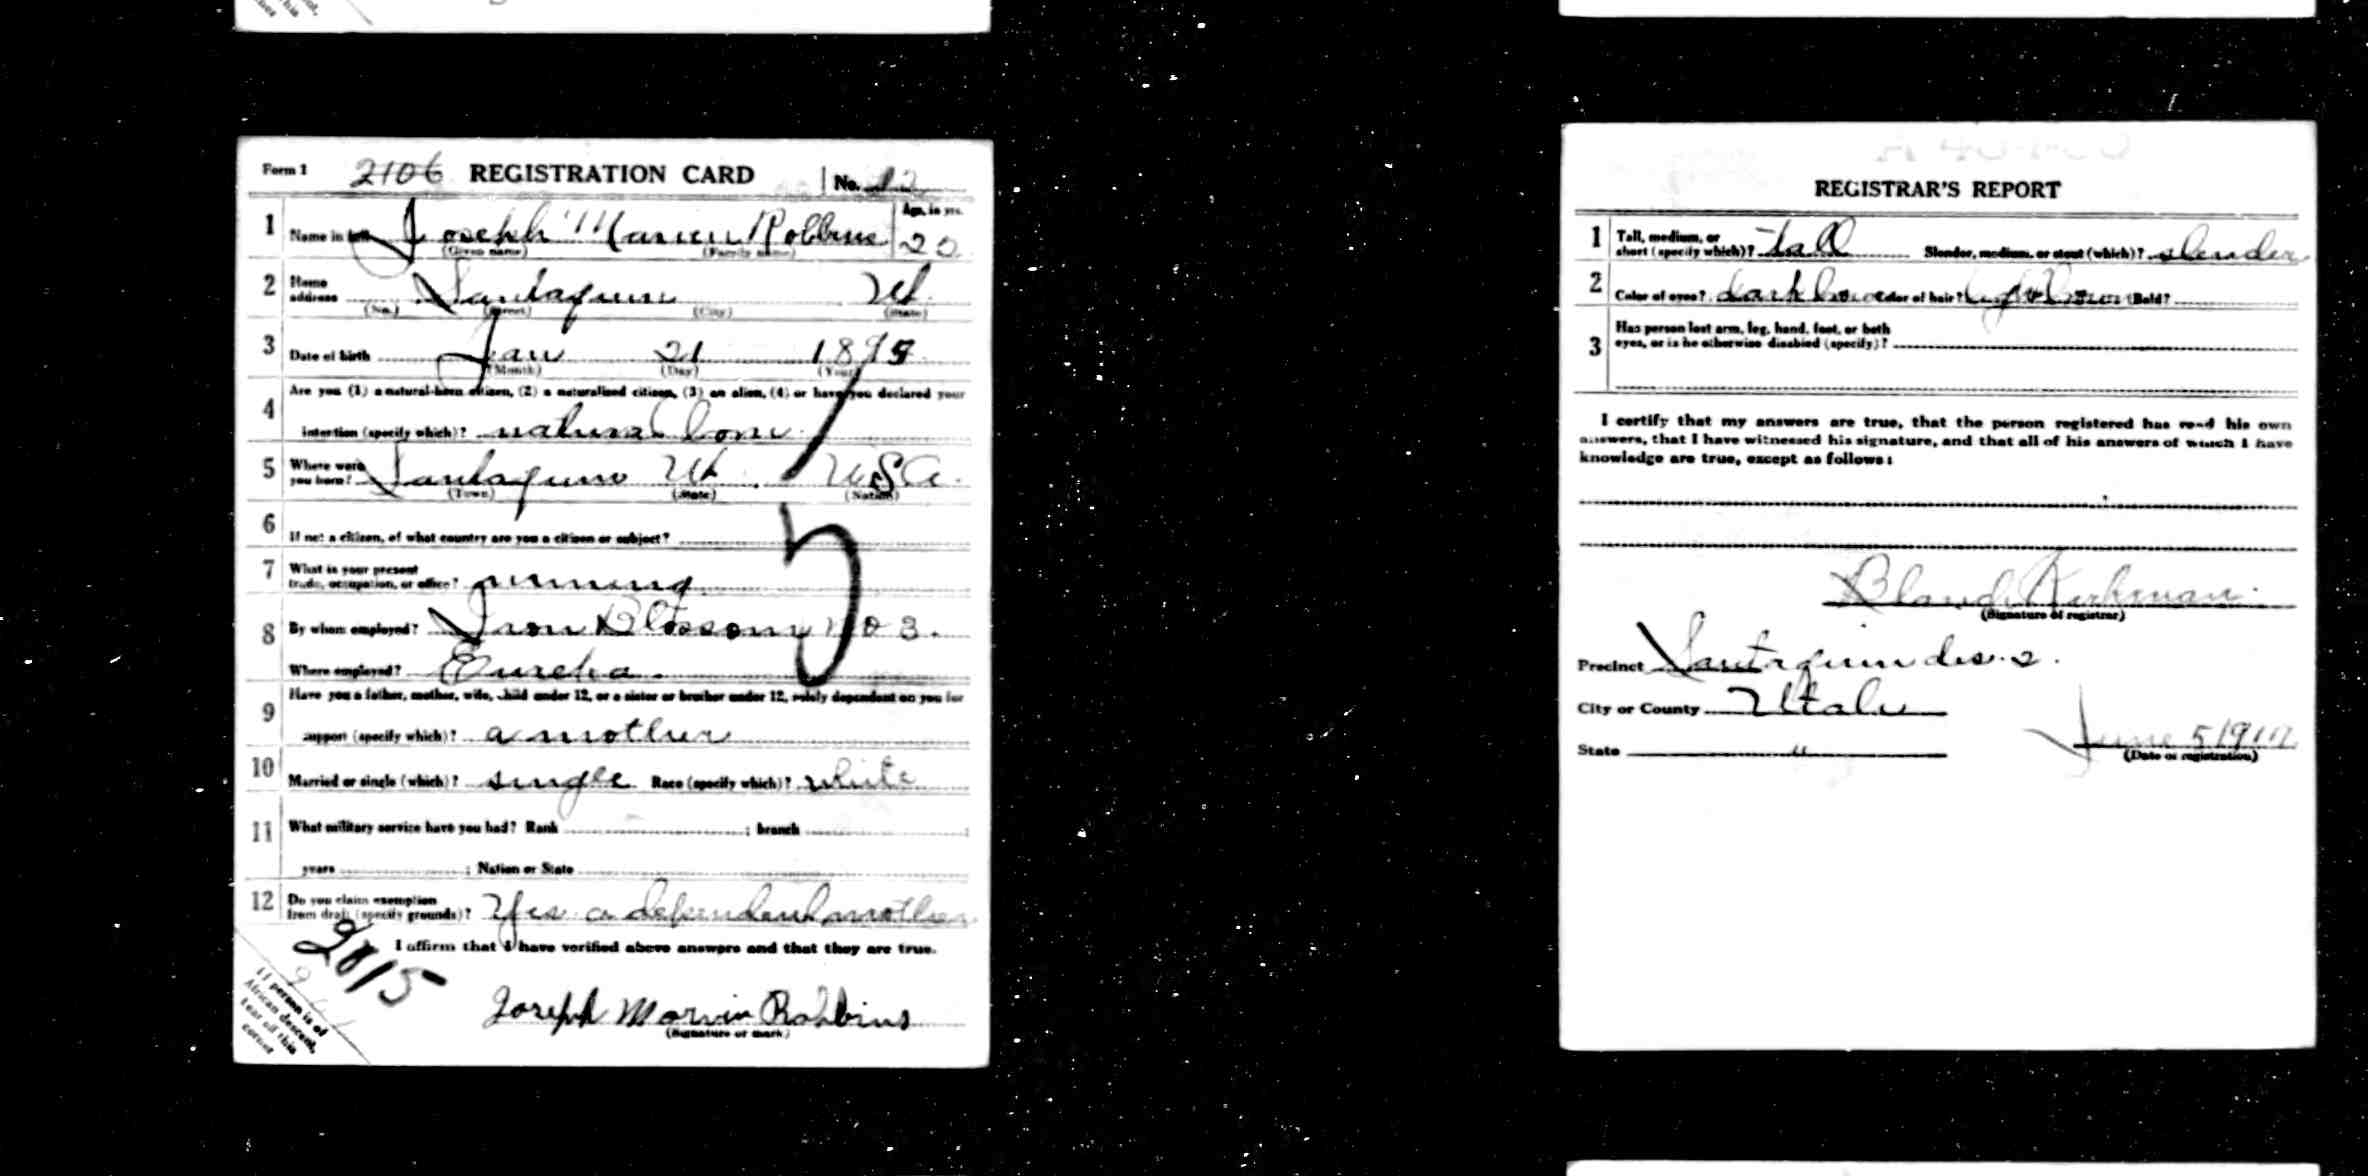 Form 1 2106 REGISTRATION CARD No. 12
1 Name in full Joseph Marvin Robbins Age, in yrs.
(Given name) (Family name)
2 Home address Santaquin Ut.
(No.) (Street) (City) (State)
3 Date of birth Jan 21 189
(Month) (Day) (Year)
4 Are you (1) a natural-born citizen, (2) a naturalized citizen, (3) an alien, (4) or have you declared your
intention (specify which)? natural born
5 Where were you born? Santaquin Ut. U.S.A.
(Town) (State) (Nation)
6 If not a citizen, of what country are you a citizen or subject?
7 What is your present
trade, occupation, or office? mining
8 By whom employed? Iron Blossom no 3.
Where employed? Eureka.
9 Have you a father, mother, wife, child under 12, or a sister or brother under 12, solely dependent on you for
support (specify which)? a mother
10 Married or single (which)? single Race (specify which)? white
11 What military service have you had? Rank ; branch ;
years ; Nation or State
12 Do you claim exemption
from draft (specify grounds)? Yes a dependent mother
I affirm that I have verified above answers and that they are true.
2815
If person is of
African descent,
tear off this
corner
Joseph Marvin Robbins
(Signature or mark)
REGISTRAR'S REPORT
1 Tall, medium, or
short (specify which)? tall Slender, medium, or stout (which)? slender
2 Color of eyes? dark brown Color of hair? light brown Bald?
3 Has person lost arm, leg, hand, foot, or both
eyes, or is he otherwise disabled (specify)?
I certify that my answers are true, that the person registered has read his own
answers, that I have witnessed his signature, and that all of his answers of which I have
knowledge are true, except as follows:
(Signature of registrar)
Precinct Santaquin dis. 2.
City or County Utah
State " June 5 1917
(Date of registration)